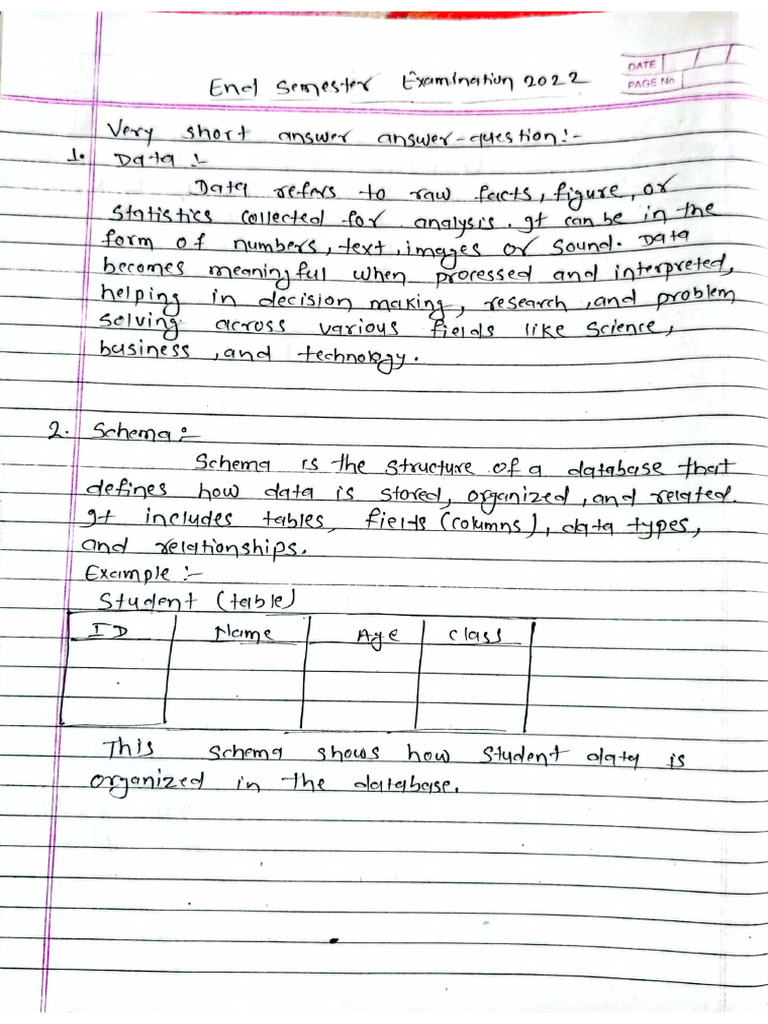 DATE
PAGE No
End Semester Examination 2022
Very short answer answer-question:-
1. Data :-
Data refers to raw facts, figure, or
Statistics collected for analysis. It can be in the
form of numbers, text, images or sound. Data
becomes meaningful when processed and interpreted,
helping in decision making, research, and problem
solving across various fields like Science,
business, and technology.
2. Schema :-
Schema is the structure of a database that
defines how data is stored, organized, and related.
It includes tables, fields (columns), data types,
and relationships.
Example :-
Student (table)
ID Name Age Class
This schema shows how student data is
organized in the database.